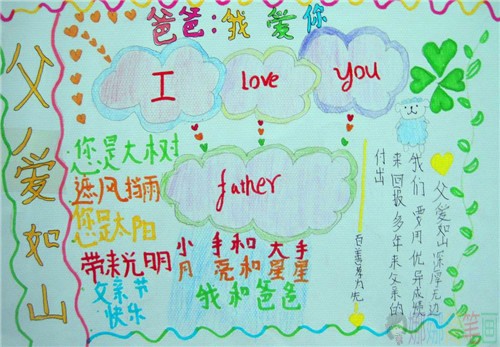 爸爸:我爱你
父爱如山
I love you
father
你是大树
遮风挡雨
您是太阳
带来光明
父亲节
快乐
小手和大手
月亮和星星
我和爸爸
父爱如山深厚无边
我们要用优异成绩
来回报多年来父亲的
付出
百善孝为先